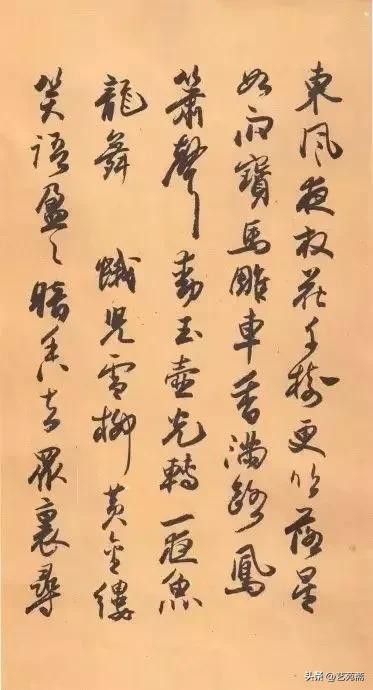 東風夜放花千樹更吹落星
如雨寶馬雕車香滿路鳳
簫聲動玉壺光轉一夜魚
龍舞 蛾兒雪柳黃金縷
笑語盈〻暗香去眾裏尋
头条 @艺苑斋